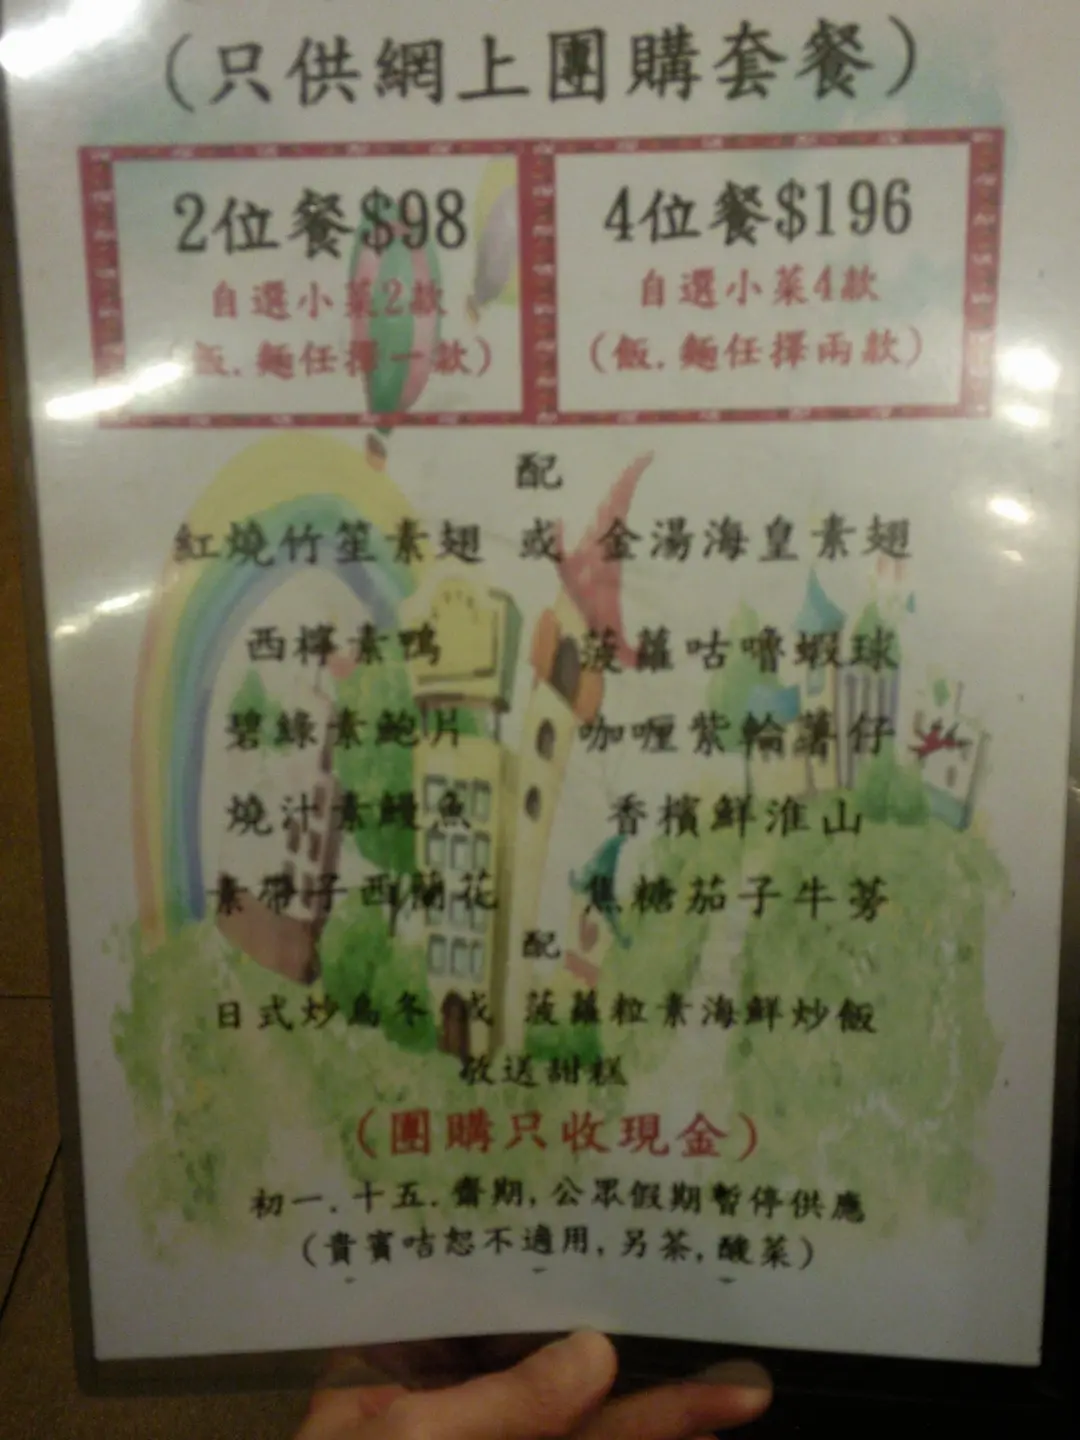 (只供網上團購套餐)
2位餐$98
自選小菜2款
(飯.麵任擇一款)
4位餐$196
自選小菜4款
(飯.麵任擇兩款)
配
紅燒竹笙素翅 或 金湯海皇素翅
西檸素鴨 菠蘿咕嚕蝦球
碧綠素鮑片 咖喱紫輪薯仔
燒汁素鰻魚 香檳鮮淮山
素帶子西蘭花 焦糖茄子牛蒡
配
日式炒烏冬 或 菠蘿粒素海鮮炒飯
敬送甜糕
(團購只收現金)
初一.十五.齋期,公眾假期暫停供應
(貴賓咭恕不適用,另茶,酸菜)